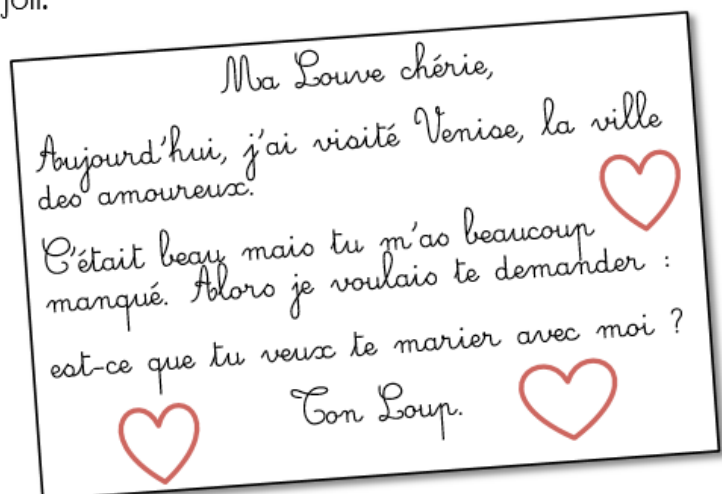 joli.
Ma Louve chérie,
Aujourd'hui, j'ai visité Venise, la ville
des amoureux.
C'était beau mais tu m'as beaucoup
manqué. Alors je voulais te demander :
est-ce que tu veux te marier avec moi ?
Ton Loup.